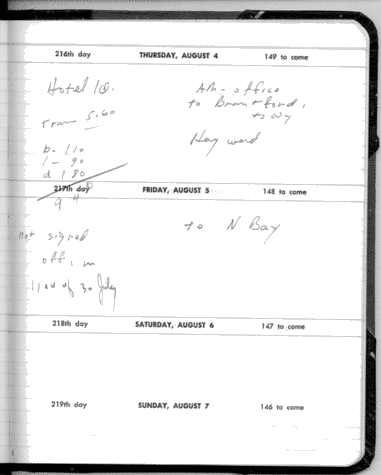 216th day THURSDAY, AUGUST 4 149 to come
Hotel 10.
Tram 5.60
b- 110
l - 90
d 180
Ah - office
to
to Wy
Hay ward
217th day FRIDAY, AUGUST 5 148 to come
9
to N Bay
not signed
off, in
of 30 July
218th day SATURDAY, AUGUST 6 147 to come
219th day SUNDAY, AUGUST 7 146 to come